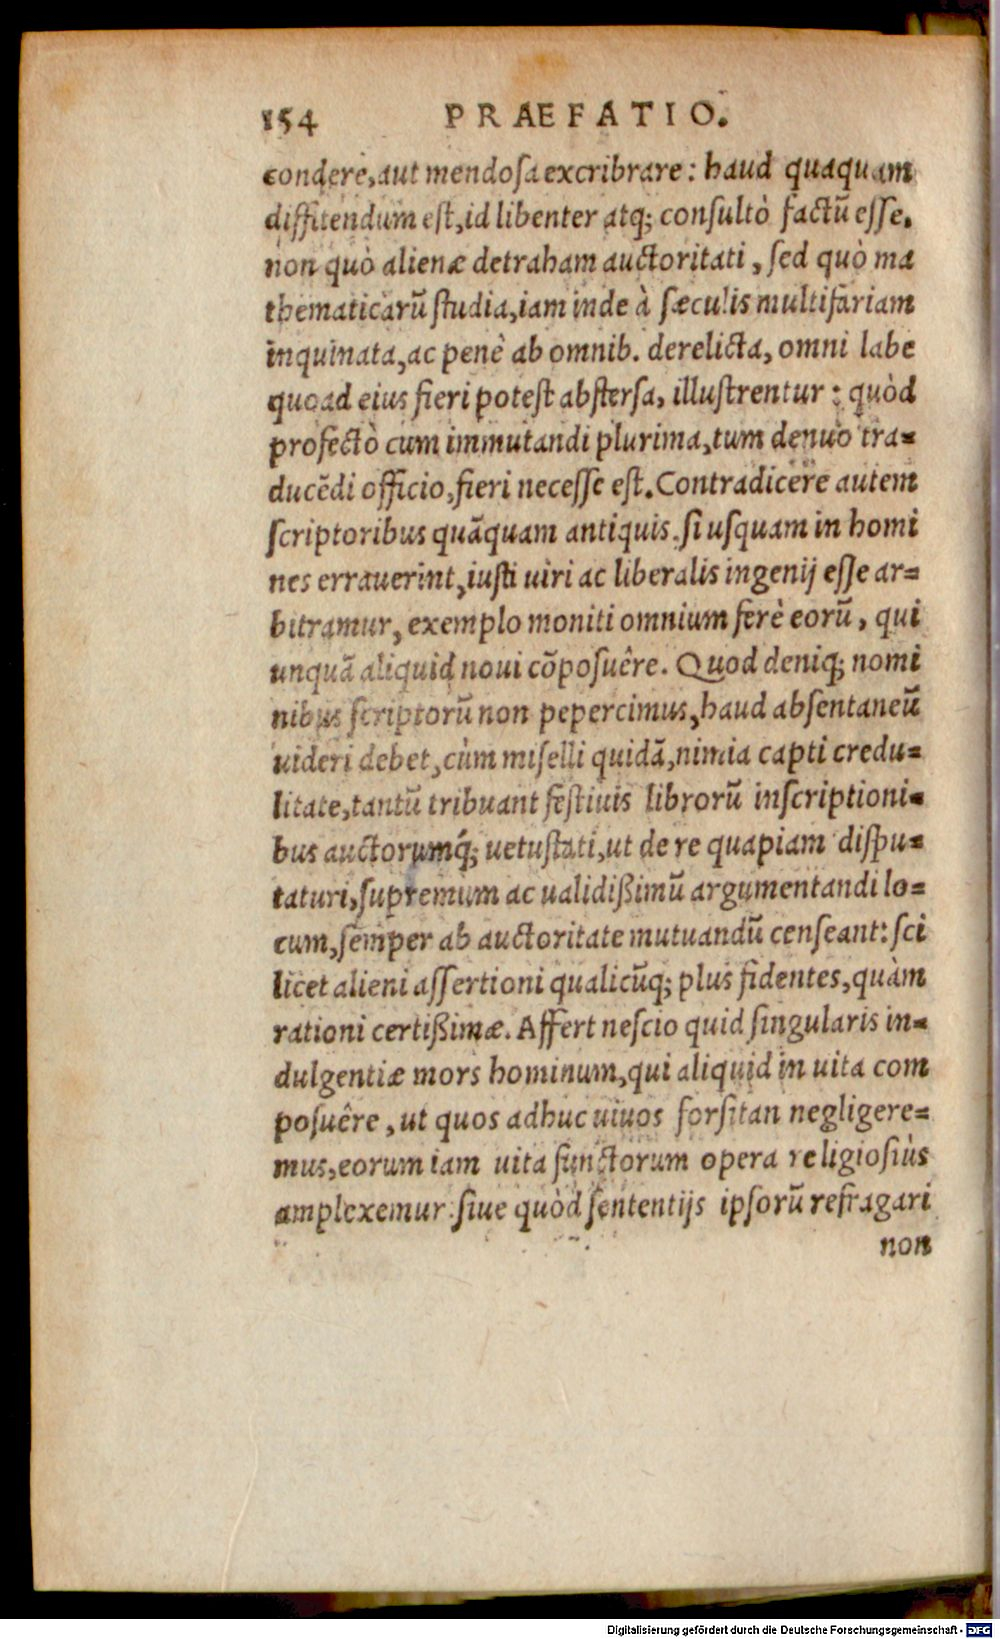 154 PRAEFATIO.
condere, aut mendosa excribrare: haud quaquam
diffitendum est, id libenter atq; consultò factũ esse.
non quò alienæ detraham auctoritati, sed quò ma
thematicarũ studia, iam inde à sæculis multifariam
inquinata, ac penè ab omnib. derelicta, omni labe
quoad eius fieri potest abstersa, illustrentur: quòd
profectò cum immutandi plurima, tum denuo tra-
ducẽdi officio, fieri necesse est. Contradicere autem
scriptoribus quãquam antiquis. si usquam in homi
nes errauerint, iusti uiri ac liberalis ingenij esse ar-
bitramur, exemplo moniti omnium ferè eorũ, qui
unquã aliquid noui cõposuêre. Quod deniq; nomi
nibus scriptorũ non pepercimus, haud absentaneũ
uideri debet, cùm miselli quidã, nimia capti credu-
litate, tantũ tribuant festiuis librorũ inscriptioni-
bus auctorumq́; uetustati, ut de re quapiam dispu-
taturi, supremum ac ualidißimũ argumentandi lo-
cum, semper ab auctoritate mutuandũ censeant: sci
licet alieni assertioni qualicũq; plus fidentes, quàm
rationi certißimæ. Affert nescio quid singularis in-
dulgentiæ mors hominum, qui aliquid in uita com
posuêre, ut quos adhuc uiuos forsitan negligere-
mus, eorum iam uita functorum opera religiosiùs
amplexemur: siue quòd sententijs ipsorũ refragari
non
Digitalisierung gefördert durch die Deutsche Forschungsgemeinschaft - DFG